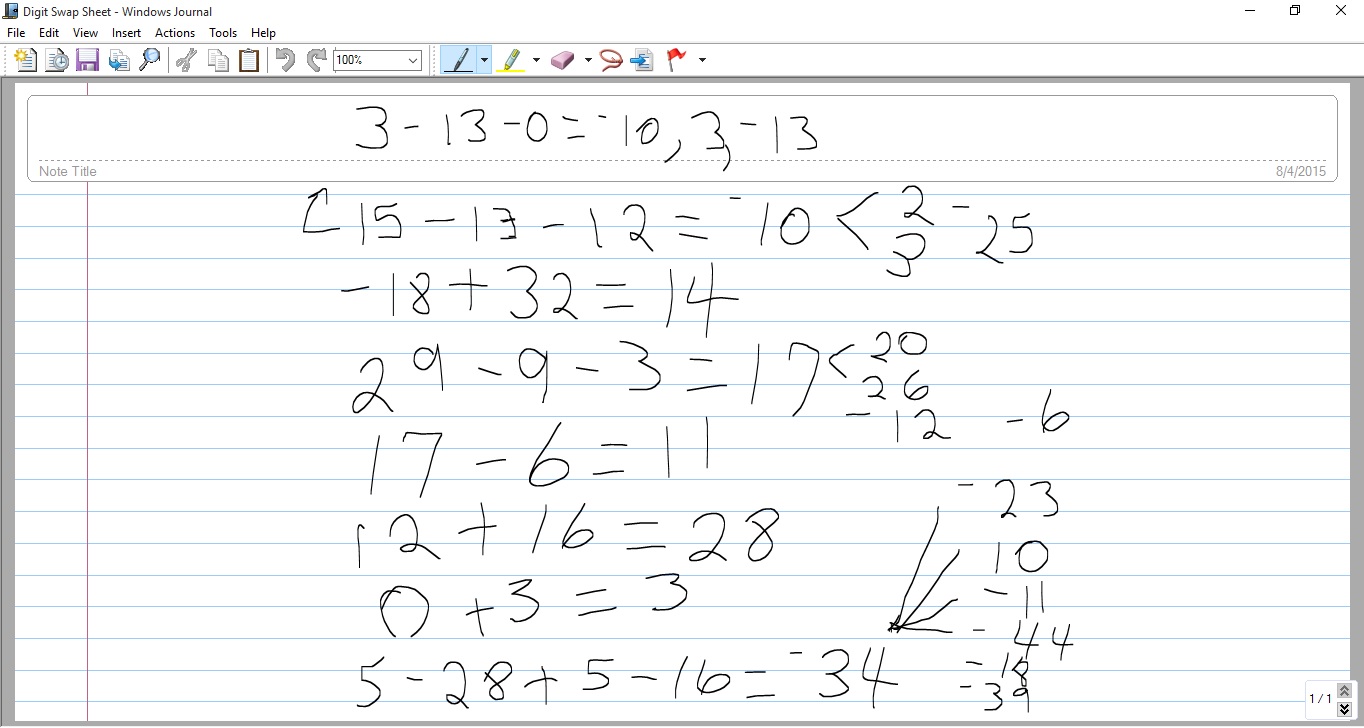 Digit Swap Sheet - Windows Journal
File Edit View Insert Actions Tools Help
100%
3 - 13 - 0 = -10, 3, -13
Note Title 8/4/2015
15 - 13 - 12 = -10 < 2 -25
3
-18 + 32 = 14
29 - 9 - 3 = 17 < 20
26
-12 -6
17 - 6 = 11
-23
12 + 16 = 28
10
0 + 3 = 3
-11
-44
5 - 28 + 5 - 16 = -34
-18
-39
1 / 1